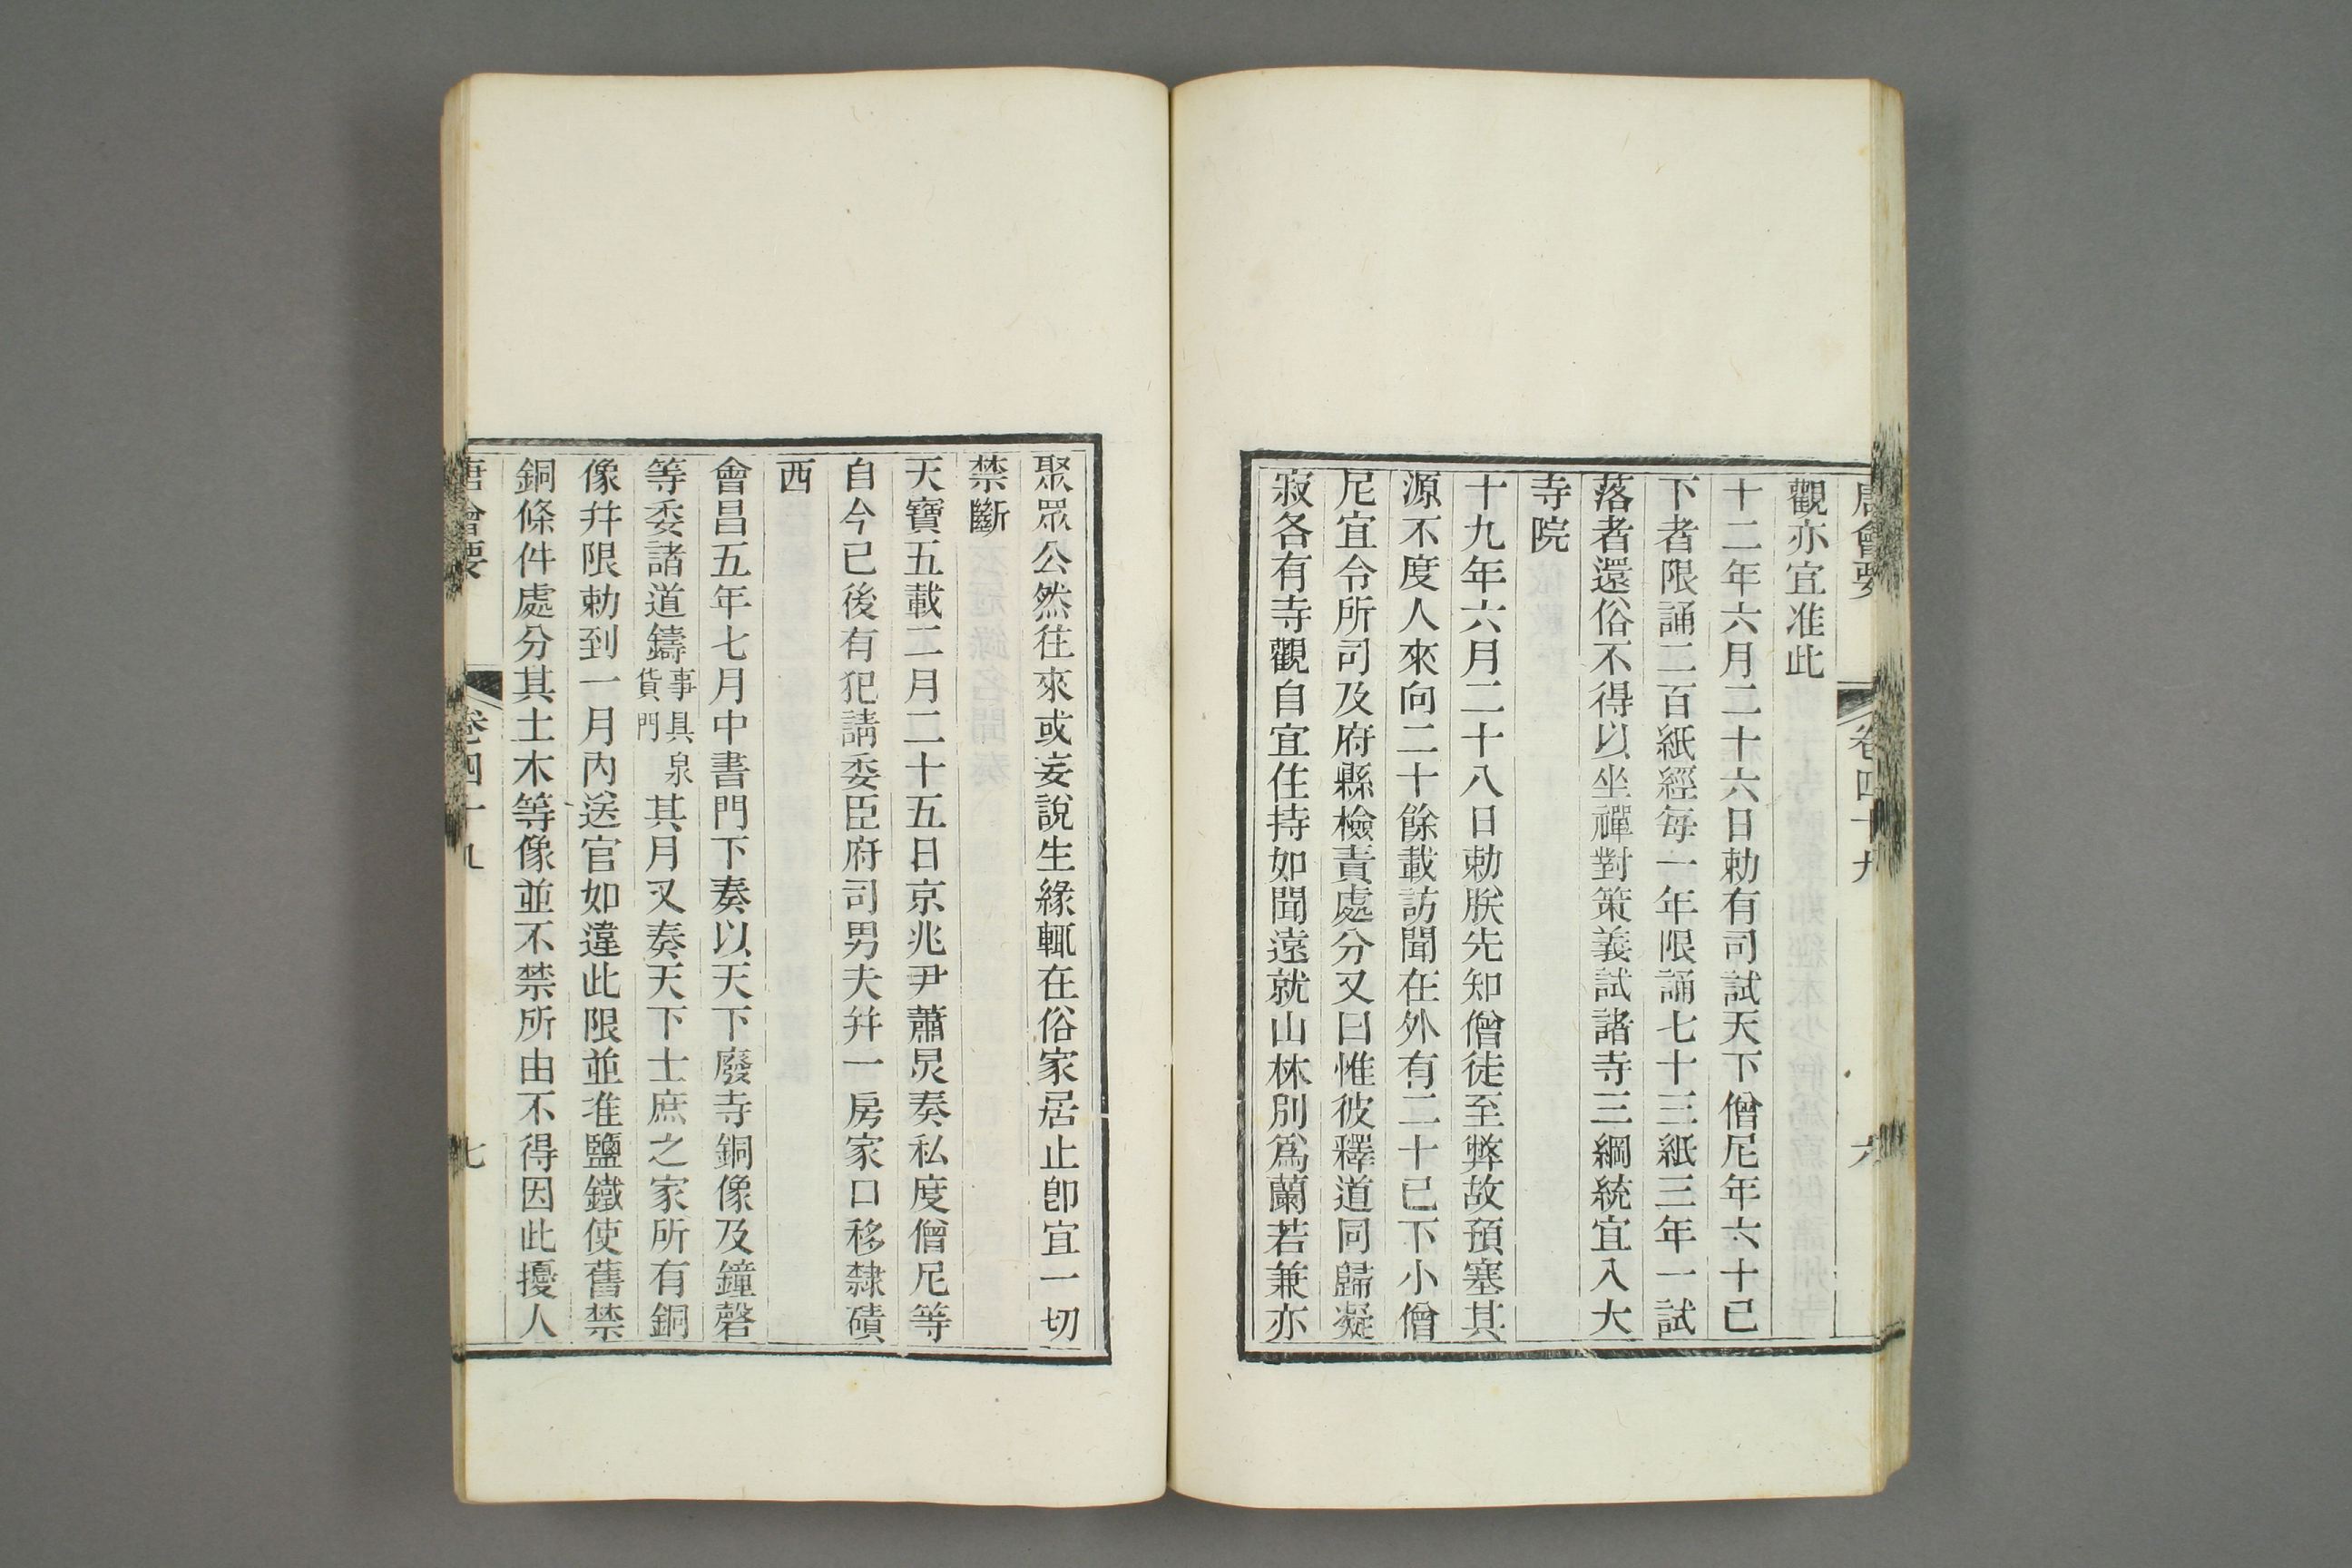 唐會要 卷四十九 六
觀亦宜准此
十二年六月二十六日勅有司試天下僧尼年六十已
下者限誦二百紙經每一年限誦七十三紙三年一試
落者還俗不得以坐禪對策義試諸寺三綱統宜入大
寺院
十九年六月二十八日勅朕先知僧徒至弊故預塞其
源不度人來向二十餘載訪聞在外有二十已下小僧
尼宜令所司及府縣檢責處分又曰惟彼釋道同歸凝
寂各有寺觀自宜住持如聞遠就山林別爲蘭若兼亦
聚眾公然往來或妄說生緣輒在俗家居止卽宜一切
禁斷
天寶五載二月二十五日京兆尹蕭炅奏私度僧尼等
自今已後有犯請委臣府司男夫幷一房家口移隸磧
西
會昌五年七月中書門下奏以天下廢寺銅像及鐘磬
等委諸道鑄事具泉貨門其月又奏天下士庶之家所有銅
像幷限勅到一月內送官如違此限並准鹽鐵使舊禁
銅條件處分其土木等像並不禁所由不得因此擾人
唐會要 卷四十九 七